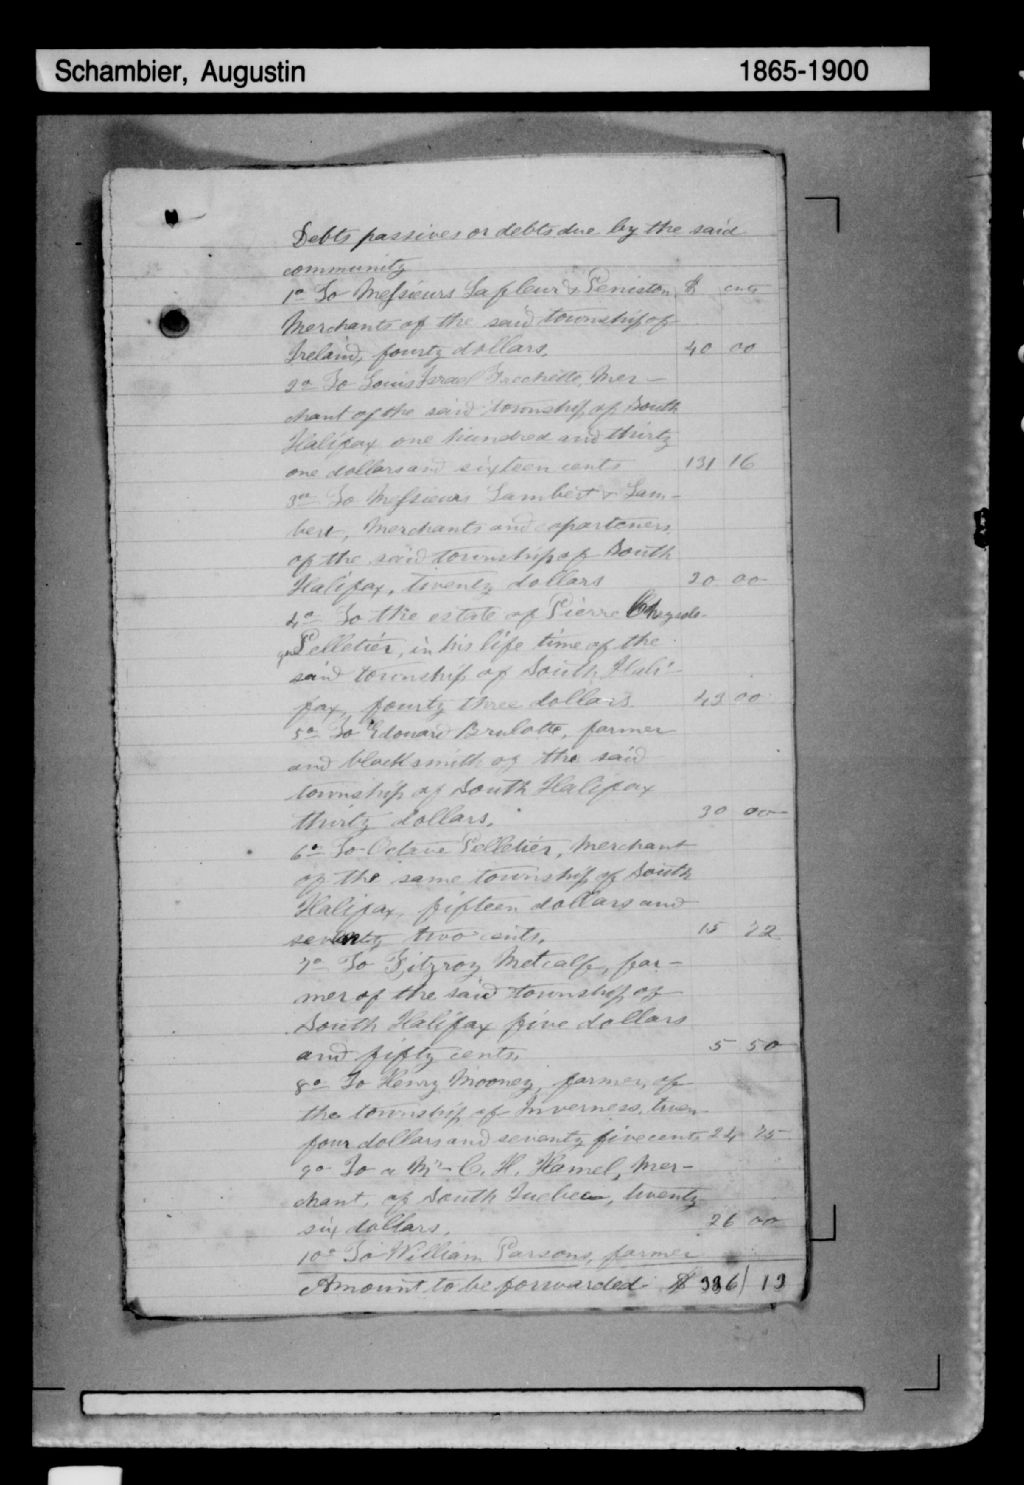 Schambier, Augustin 1865-1900
Debts passives or debts due by the said
community
1o To Messieurs Lafleur & Peniston $ cnts
Merchants of the said township of
Ireland, fourty dollars, 40 00
2o To Louis Israel Frechette, Mer-
chant of the said township of South
Halifax one hundred and thirty
one dollars and sixteen cents 131 16
3o To Messieurs Lambert & Lam-
bert, Merchants and copartners
of the said township of South
Halifax, twenty dollars 20 00
4o To the estate of Pierre
Pelletier, in his life time of the
said township of South Hali-
fax, fourty three dollars. 43 00
5o To Edouard Brulotte, farmer
and blacksmith of the said
township of South Halifax
thirty dollars. 30 00
6o To Octave Pelletier, Merchant
of the same township of South
Halifax, fifteen dollars and
seventy two cents. 15 72
7o To Fitzroy Metcalfe, far-
mer of the said township of
South Halifax five dollars
and fifty cents, 5 50
8o To Henry Mooney, farmer, of
the township of Inverness, twen-
four dollars and seventy five cents 24 75
9o To a Mr C. H. Hamel, Mer-
chant, of South Quebec, twenty
six dollars. 26 00
10o To William Parsons, farmer
Amount to be forwarded $ 336 13